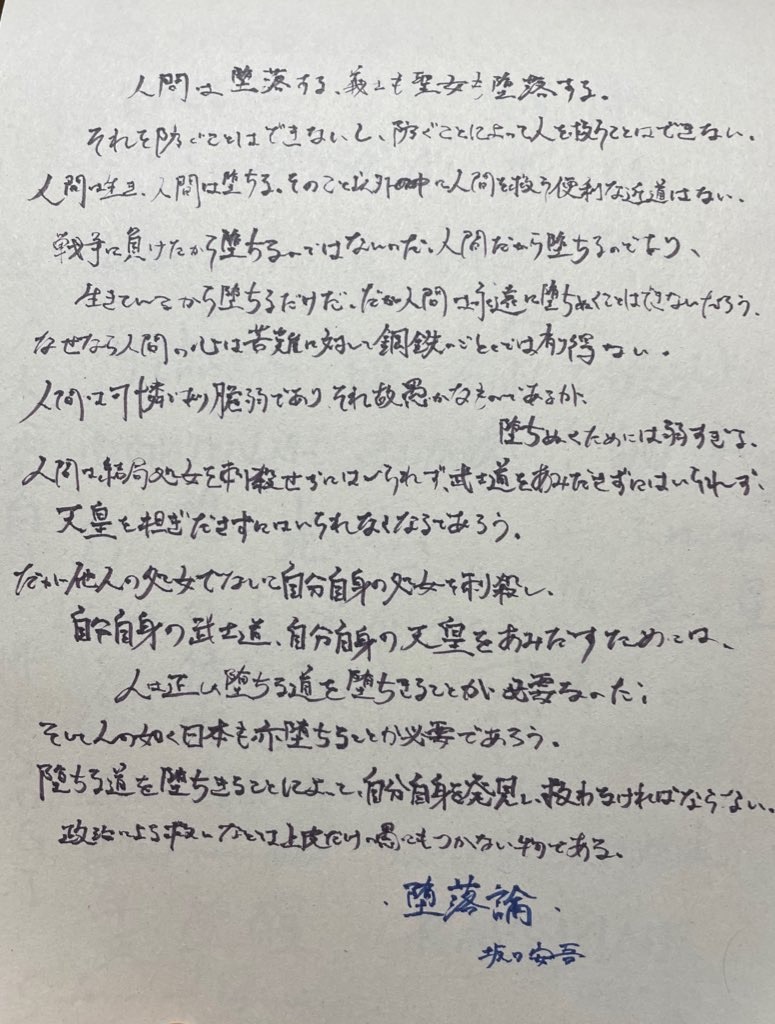 人間は堕落する、義士も聖女も堕落する。
それを防ぐことはできないし、防ぐことによって人を救うことはできない。
人間は生き、人間は堕ちる。そのこと以外の中に人間を救う便利な近道はない。
戦争に負けたから堕ちるのではないのだ。人間だから堕ちるのであり、
生きているから堕ちるだけだ。だが人間は永遠に堕ちぬくことはできないだろう。
なぜなら人間の心は苦難に対して鋼鉄のごとくでは有り得ない。
人間は可憐であり脆弱であり、それ故愚かなものであるが、
堕ちぬくためには弱すぎる。
人間は結局処女を刺殺せずにはいられず、武士道をあみださずにはいられず、
天皇を担ぎださずにはいられなくなるであろう。
だが他人の処女でないで自分自身の処女を刺殺し、
自分自身の武士道、自分自身の天皇をあみだすためには、
人は正しく堕ちる道を堕ちきることが必要なのだ。
そして人の如く日本も亦堕ちることが必要であろう。
堕ちる道を堕ちきることによって、自分自身を発見し、救わなければならない。
政治による救いなどは上皮だけの愚にもつかない物である。
・堕落論・
坂口安吾